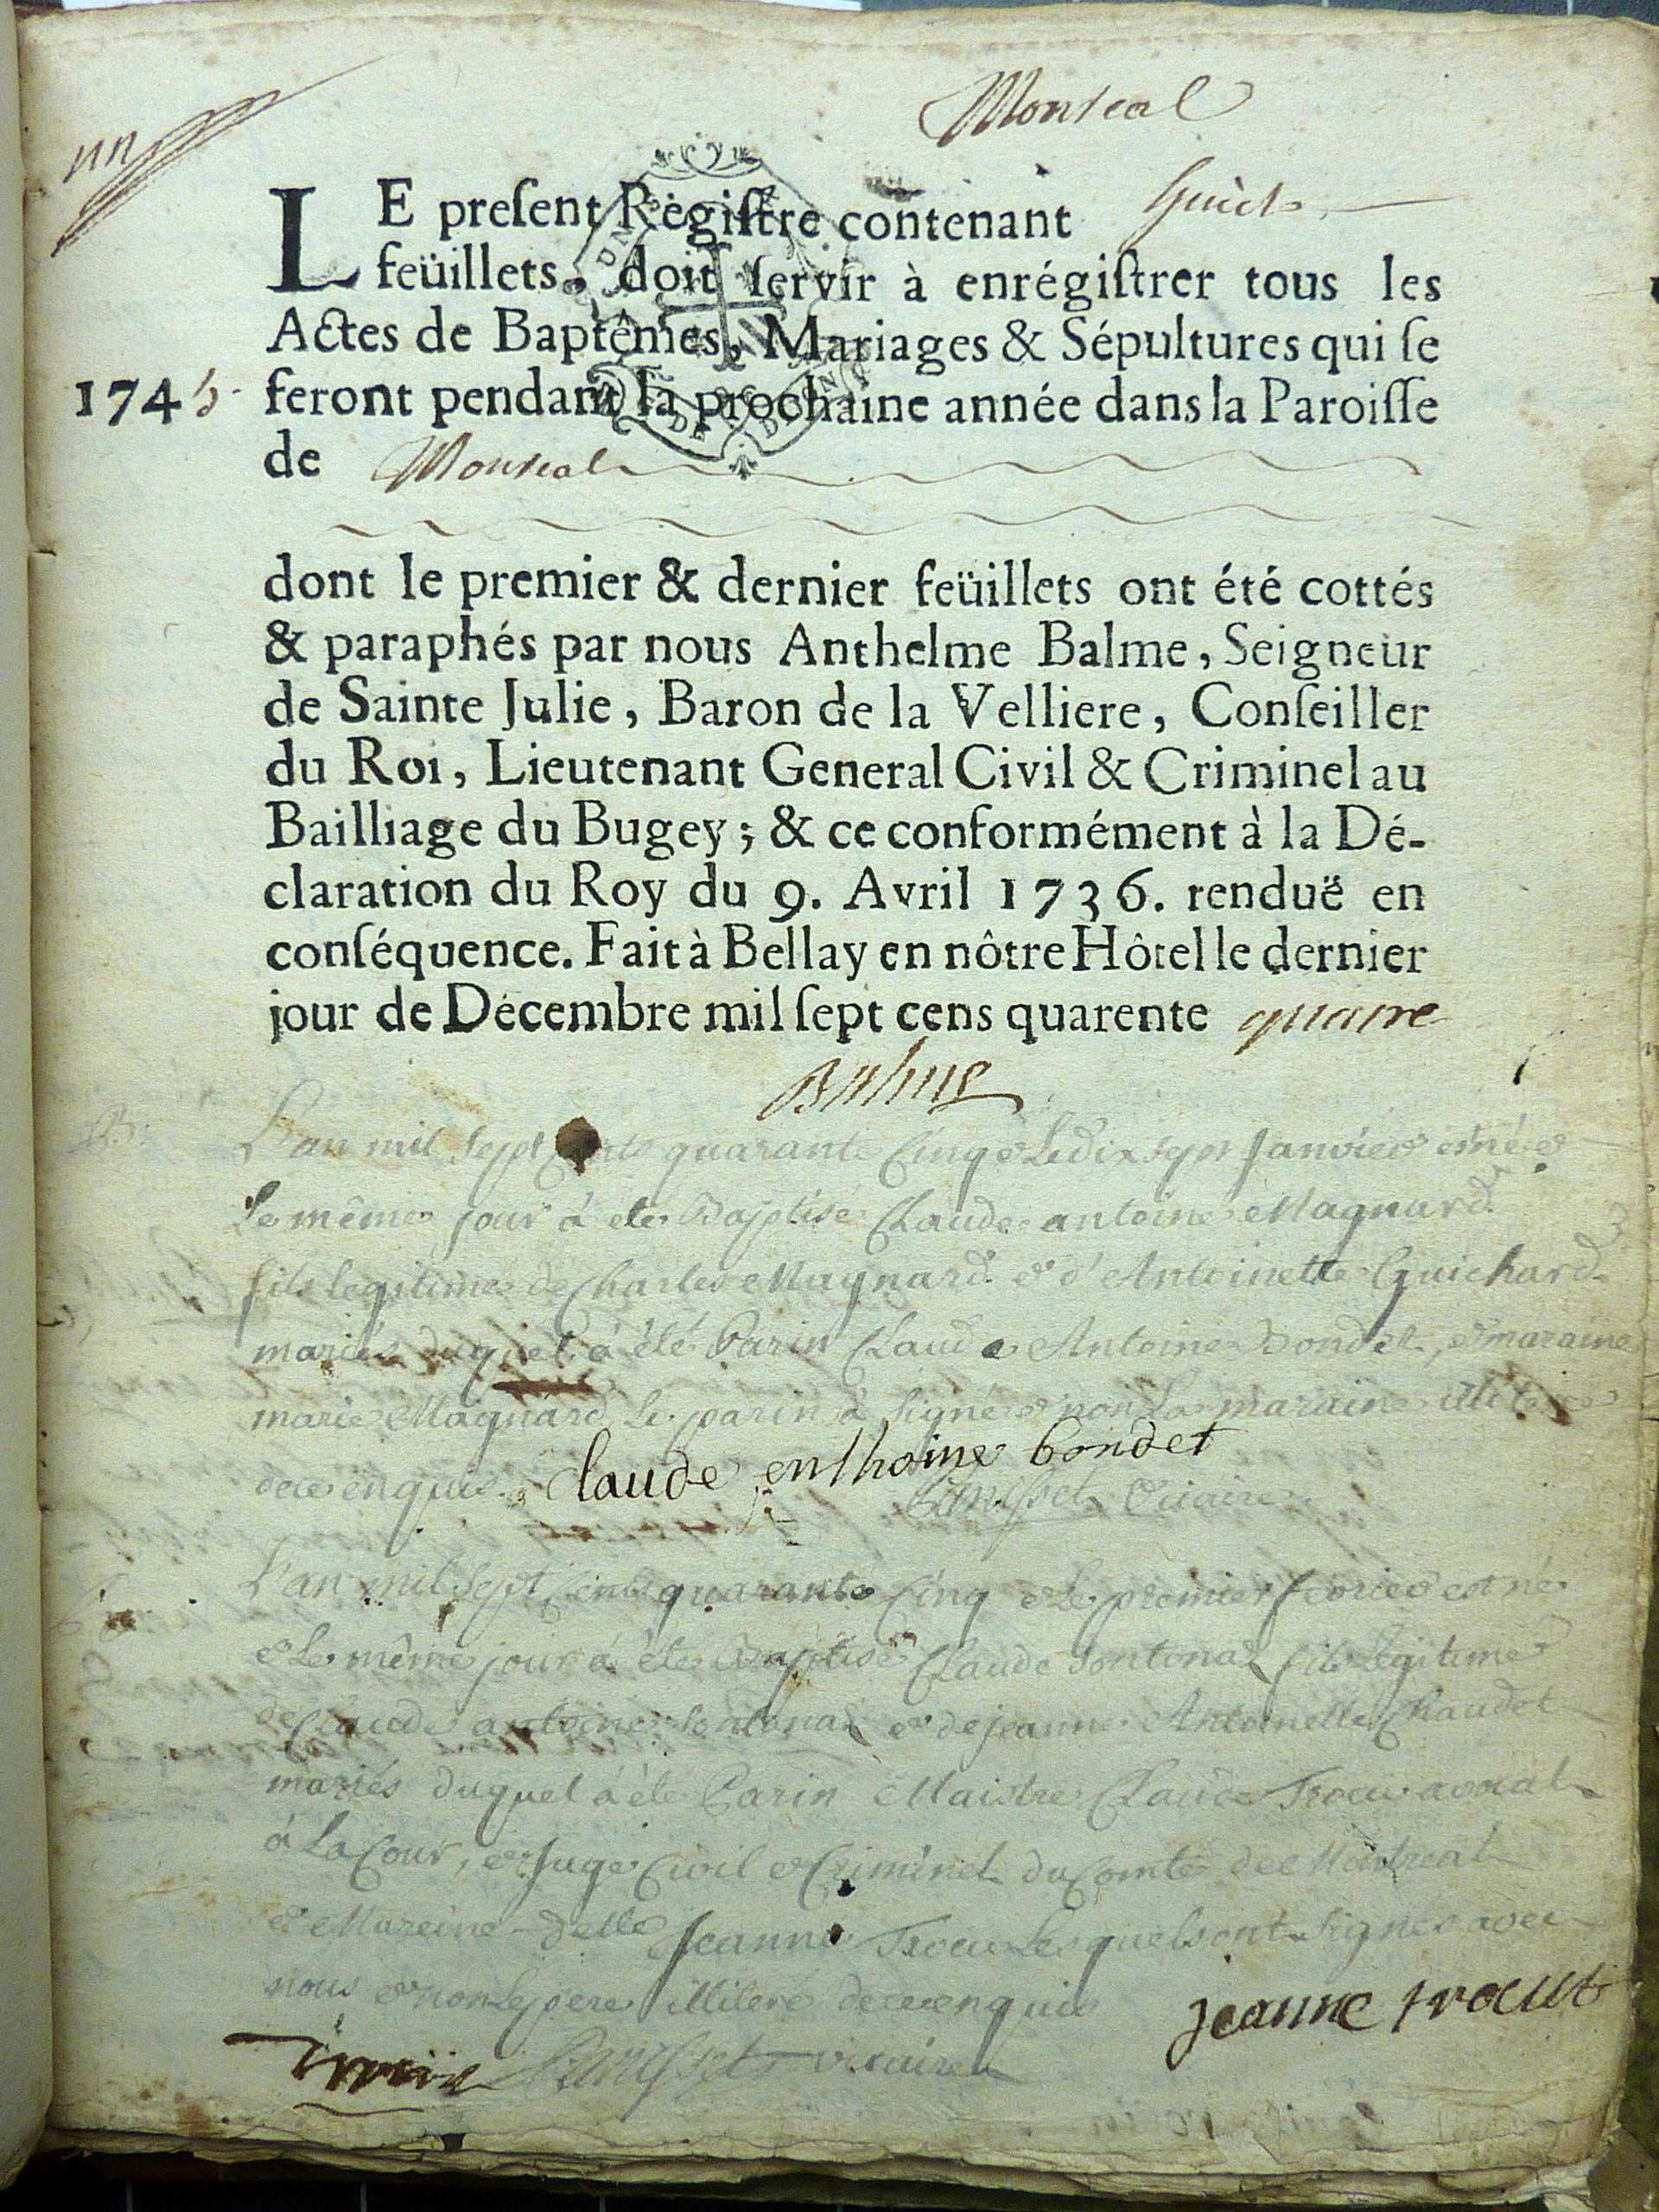 Montreal
un
LE preſent Régiſtre contenant huict
feüillets, doit ſervir à enrégiſtrer tous les
Actes de Baptêmes, Mariages & Sépultures qui ſe
1745 feront pendant la prochaine année dans la Paroiſſe
de Montreal
dont le premier & dernier feüillets ont été cottés
& paraphés par nous Anthelme Balme, Seigneur
de Sainte Julie, Baron de la Velliere, Conſeiller
du Roi, Lieutenant General Civil & Criminel au
Bailliage du Bugey; & ce conformément à la Dé-
claration du Roy du 9. Avril 1736. renduë en
conſéquence. Fait à Bellay en nôtre Hôtel le dernier
jour de Décembre mil ſept cens quarente quatre
Balme
L'an mil Sept Cents quarante Cinq & Le dix sept Janvier est né &
Le même jour à eté Baptisé Claude antoine Magnard
fils legitime de Charles Magnard & d'Antoinette Guichard
mariés duquel à été Parin Claude Antoine Bondet, & maraine
marie Magnard, Le parin à signé & non La maraine illiterée
de ce enquise. Claude enthoine bondet
vicaire
L'an mil Sept Cents quarante Cinq & Le premier fevrier est né
& Le même jour à été Baptisé Claude Sontonax fils Legitime
de Claude antoine Sontonax & de jeanne Antoinette Chaudet
mariés duquel à été Parin Maistre Claude Trocu avocat
à La Cour, & Juge Civil & Criminel du Comté de Montreal
& Mareine delle Jeanne Trocu Lesquels ont signés avec
nous & non Le pere illiteré de ce enquis jeanne trocut
vicaire